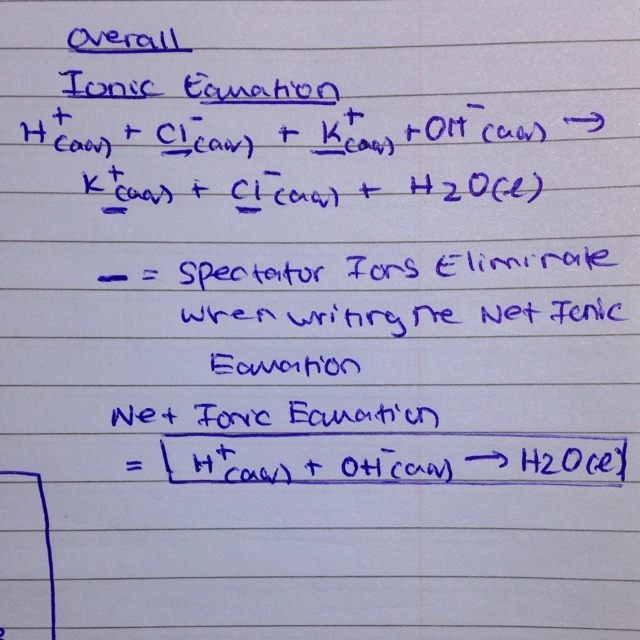 Overall
Ionic Equation
H⁺(aq) + Cl⁻(aq) + K⁺(aq) + OH⁻(aq) →
K⁺(aq) + Cl⁻(aq) + H2O(l)
– = Spectator Ions Eliminate
when writing the Net Ionic
Equation
Net Ionic Equation
= H⁺(aq) + OH⁻(aq) → H2O(l)